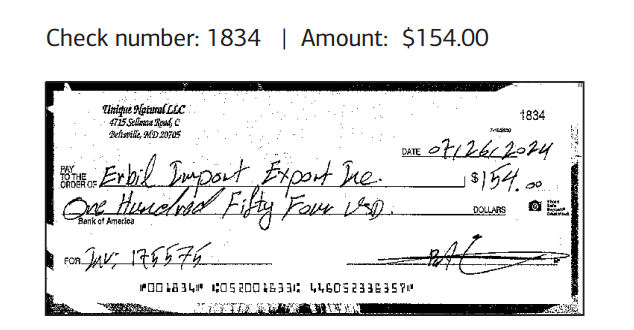 Check number: 1834 | Amount: $154.00
Unique Natural LLC
1834
4715 Sellman Road, C
Beltsville, MD 20705
DATE 07/26/2024
PAY TO THE ORDER OF Erbil Import Export Inc. $154.00
One Hundred Fifty Four USD. DOLLARS
Bank of America
FOR Inv: 175575
⑈001834⑈ ⑆052001633⑆ 446052336357⑈